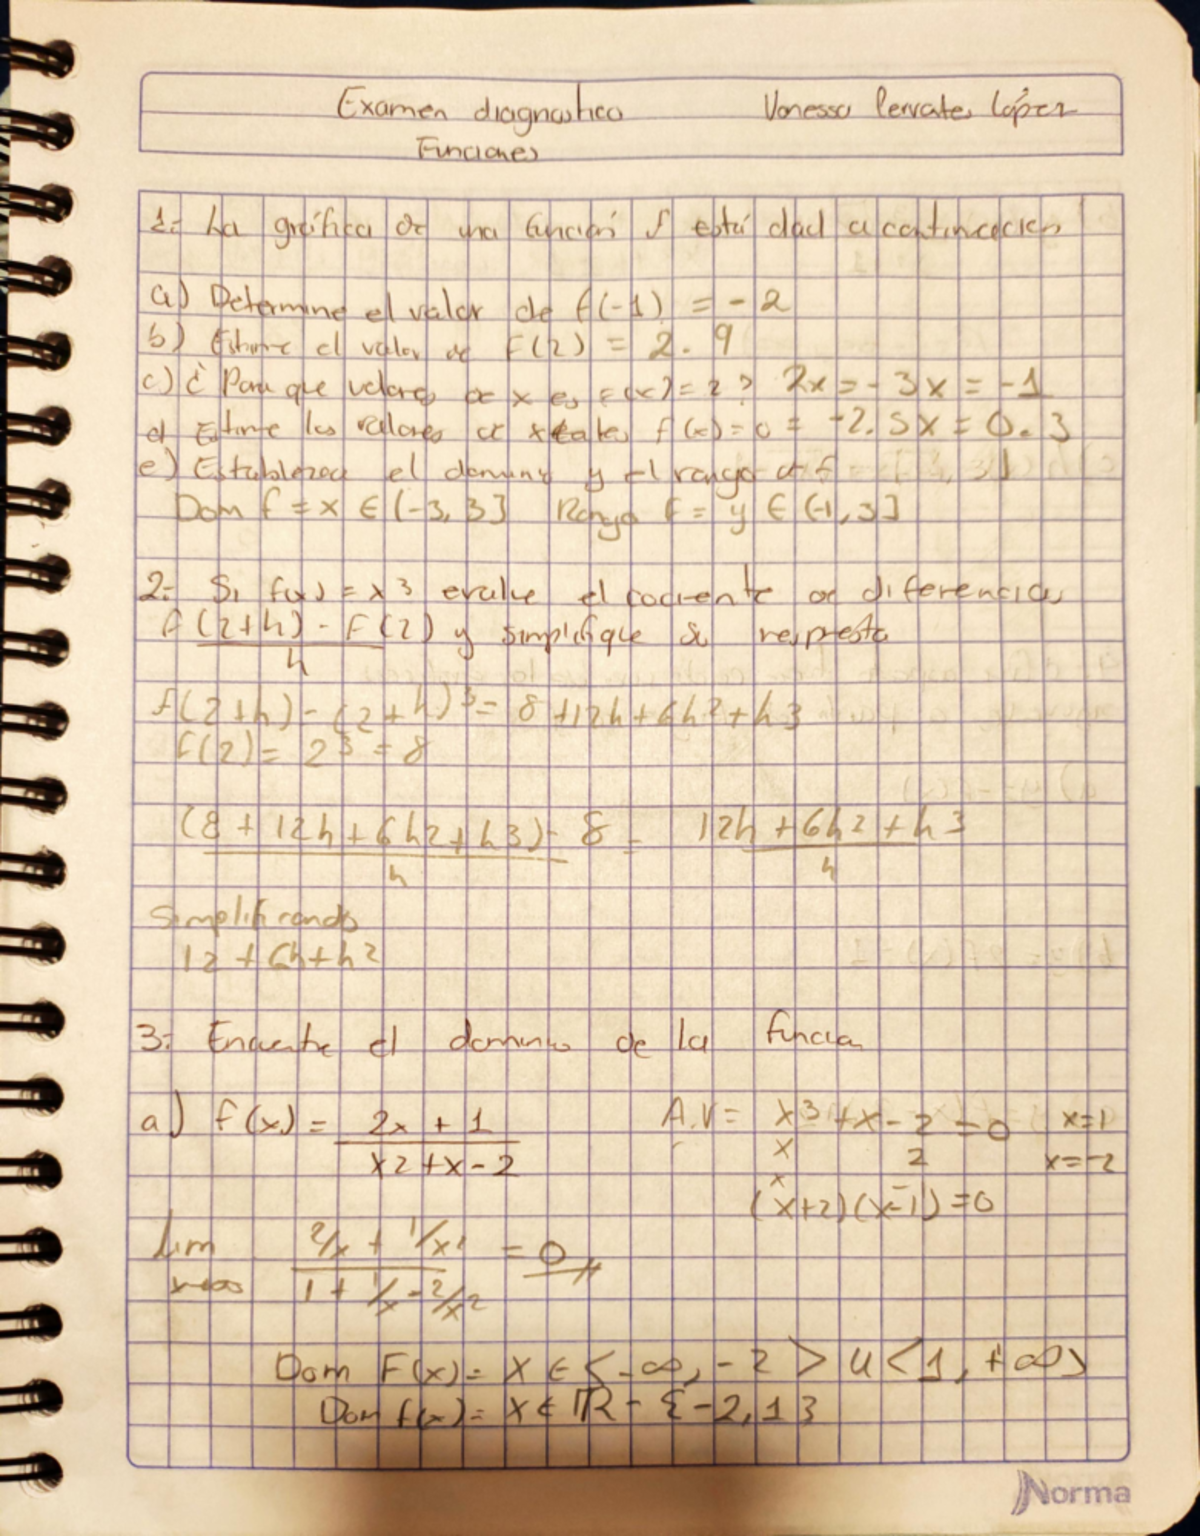 Examen diagnostico Vanessa López
Funciones
1: La gráfica de una función f está dad a continuación
a) Determine el valor de f(-1) = -2
b) Estime el valor de f(2) = 2.9
c) ¿Para que valores de x es f(x)=2? 2x = -3x = -1
d Estime los valores de x tales f(x)=0 = -2.5x = 0.3
e) Establezca el dominy y el rango de f
Dom f = x ∈ (-3, 3] Rango f = y ∈ (-1, 3]
2: Si f(x) = x3 evalue el cociente de diferencias
f(2+h) - f(2) y simplifique su respesta
h
f(2+h) - (2+h)3 = 8 +12h+6h2+h3
f(2) = 23 = 8
(8 + 12h+6h2+h3) - 8 = 12h +6h2 +h3
h h
Simplificando
12 + 6h+h2
3: Encuente el dominio de la funcion
a) f(x) = 2x + 1 A.V= x3 +x-2 =0 x=1
x2+x-2 x 2 x=-2
x (x+2)(x-1)=0
lim 2/x + 1/x1 = 0
x→∞ 1 + 1/x - 2/x2
Dom F(x)= x ∈ <-∞, -2 > u <1, +∞>
Dom f(x)= x ∈ ℝ - {-2,1}
Norma